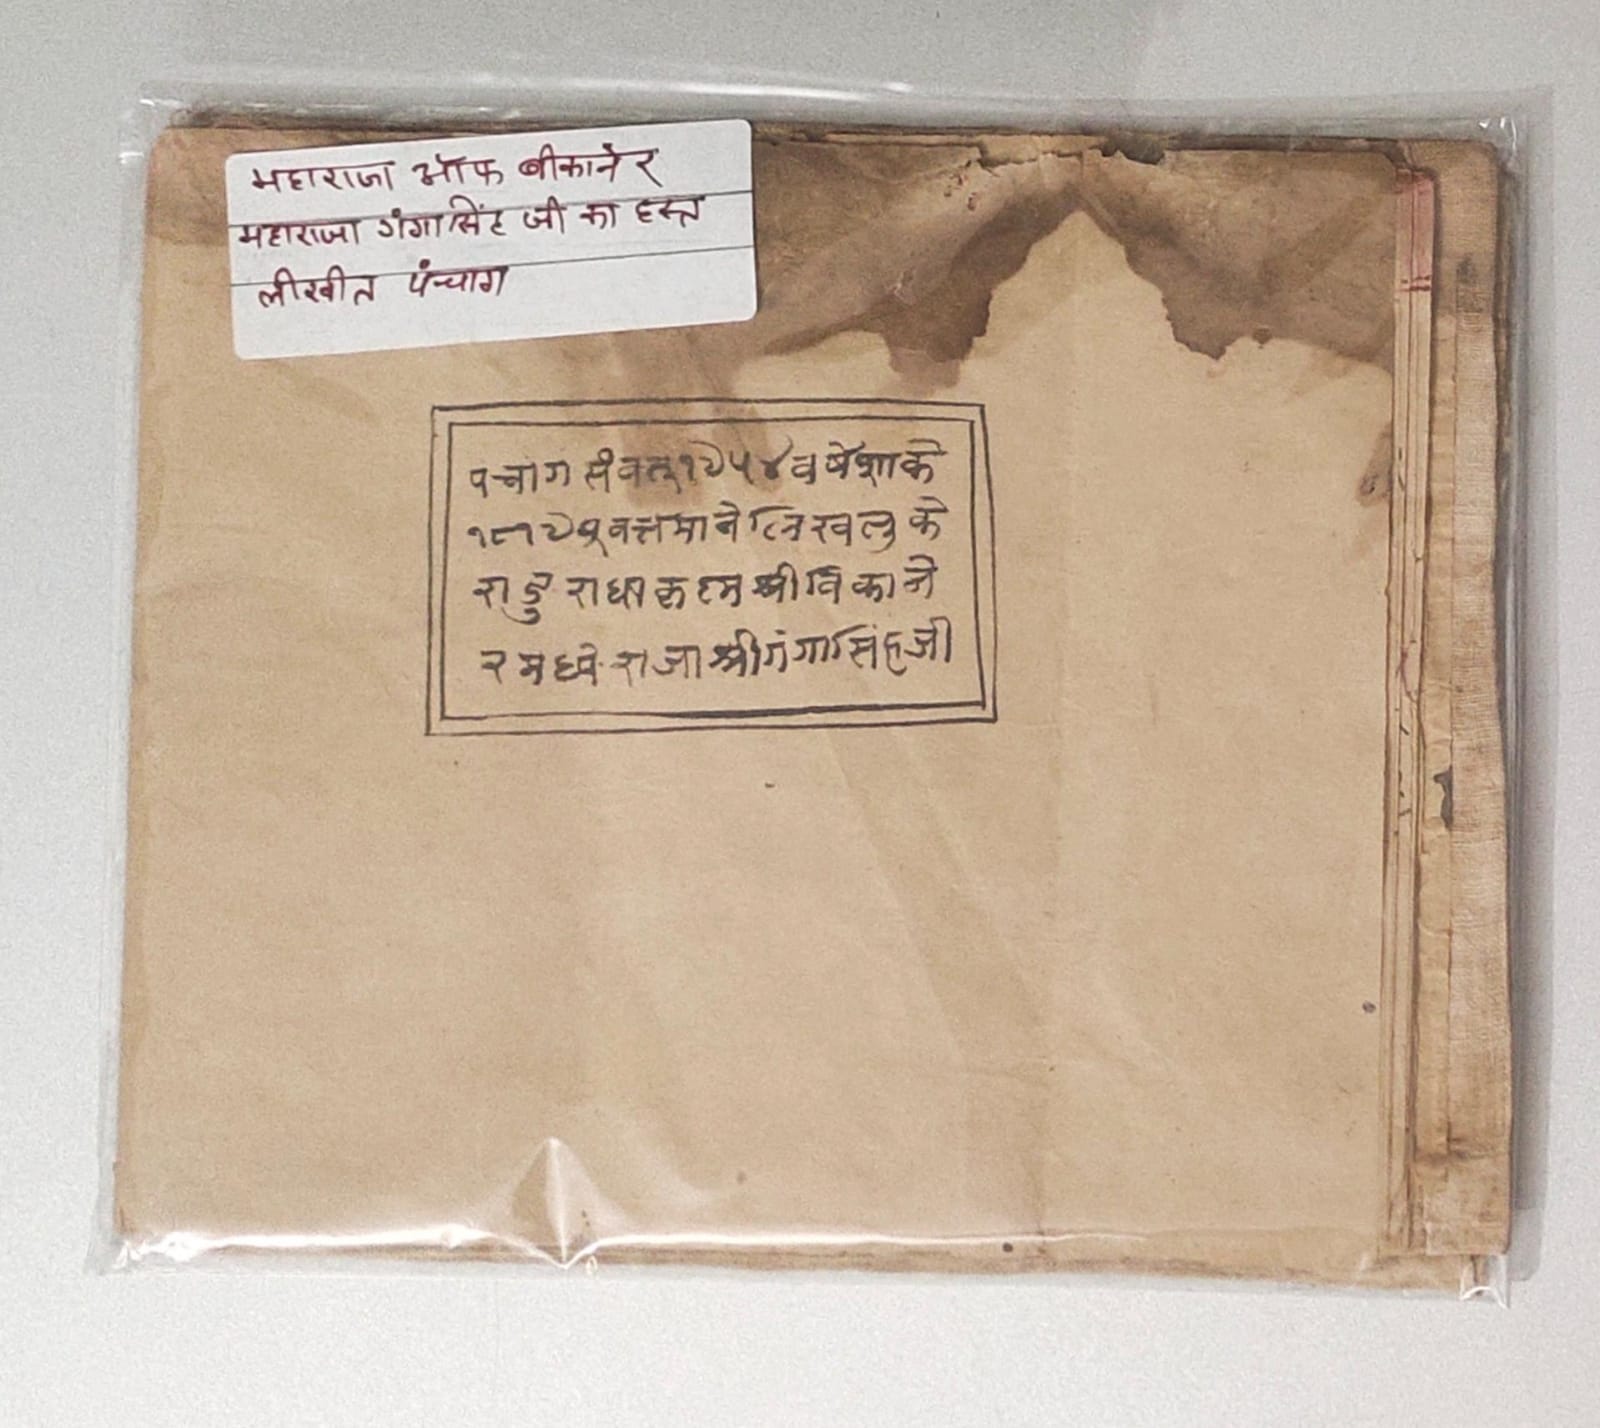 महाराजा ऑफ बीकानेर
महाराजा गंगासिंह जी का हस्त
लीखीत पंचाग
पंचाग संवत् १९५४ वर्षे शाके
१८१९ प्रवर्त्तमाने
श्री विकाने
र मध्ये राजा श्री गंगासिंह जी